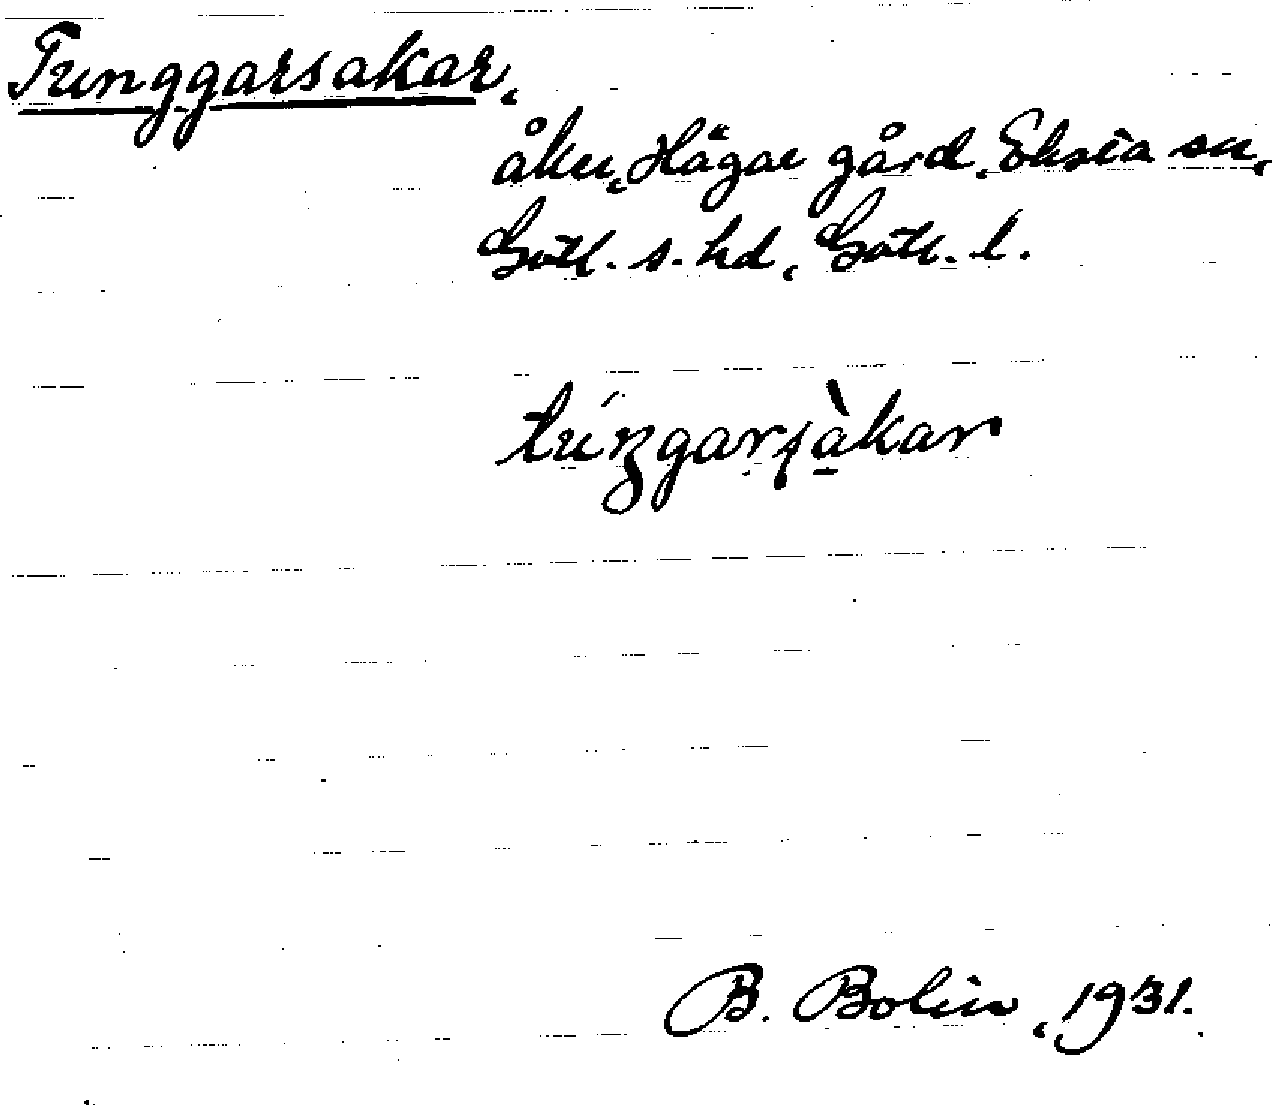 Tunggarsakar,
åker, Hägur gård, Eksta sn,
Gotl. s. hd, Gotl. l.
túŋgarsàkar
B. Bolin, 1931.